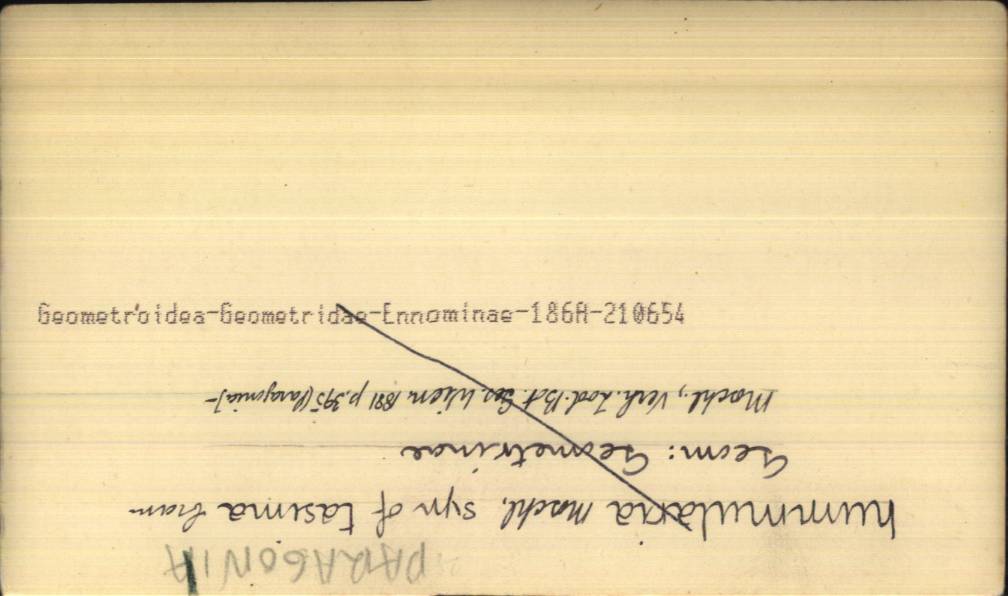 Geometroidea-Geometridae-Ennominae-186A-210654
PARAGONIA
nummularia Moschl, syn of tasima Cram
Geom: Geometrinae
Moschl, Verh. Zool. Bot. Ges. Wien 1881 p.395 (Paragonia)-